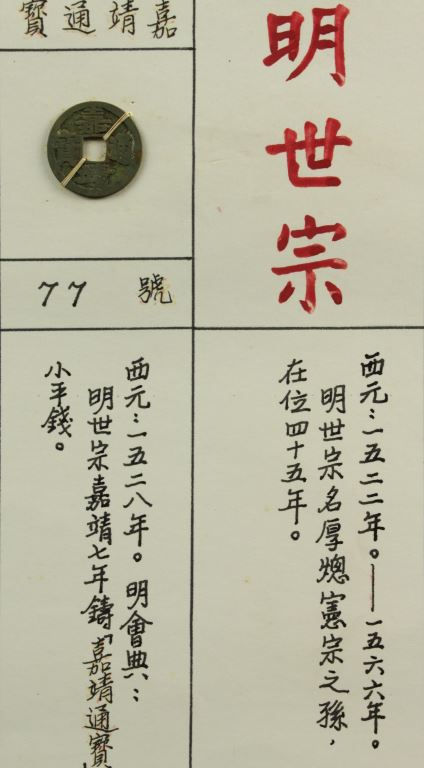 明世宗
西元：一五二二年。——一五六六年。
明世宗名厚熜憲宗之孫，
在位四十五年。
嘉靖通寶
77 號
西元：一五二八年。明會典：
明世宗嘉靖七年鑄「嘉靖通寶」
小平錢。